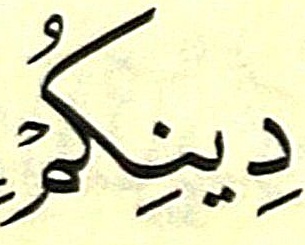 دِينِكُمْ